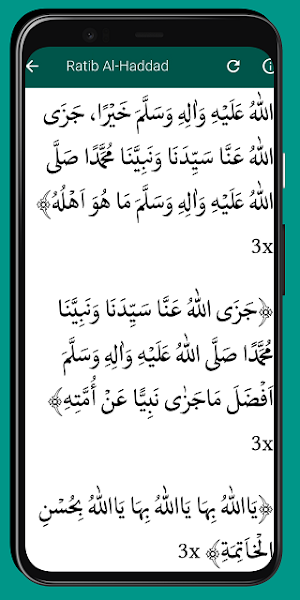 Ratib Al-Haddad
اللهُ عَلَيْهِ وَاٰلِهِ وَسَلَّمَ خَيْرًا، جَزَى
اللهُ عَنَّا سَيِّدَنَا وَنَبِيَّنَا مُحَمَّدًا صَلَّى
اللهُ عَلَيْهِ وَاٰلِهِ وَسَلَّمَ مَا هُوَ اَهْلُهُ﴾
3x
﴿جَزَى اللهُ عَنَّا سَيِّدَنَا وَنَبِيَّنَا
مُحَمَّدًا صَلَّى اللهُ عَلَيْهِ وَاٰلِهِ وَسَلَّمَ
اَفْضَلَ مَاجَزٰى نَبِيًّا عَنْ أُمَّتِهِ﴾
3x
﴿يَااللهُ بِهَا يَااللهُ بِهَا يَااللهُ بِحُسْنِ
الْخَاتِمَةِ﴾ 3x